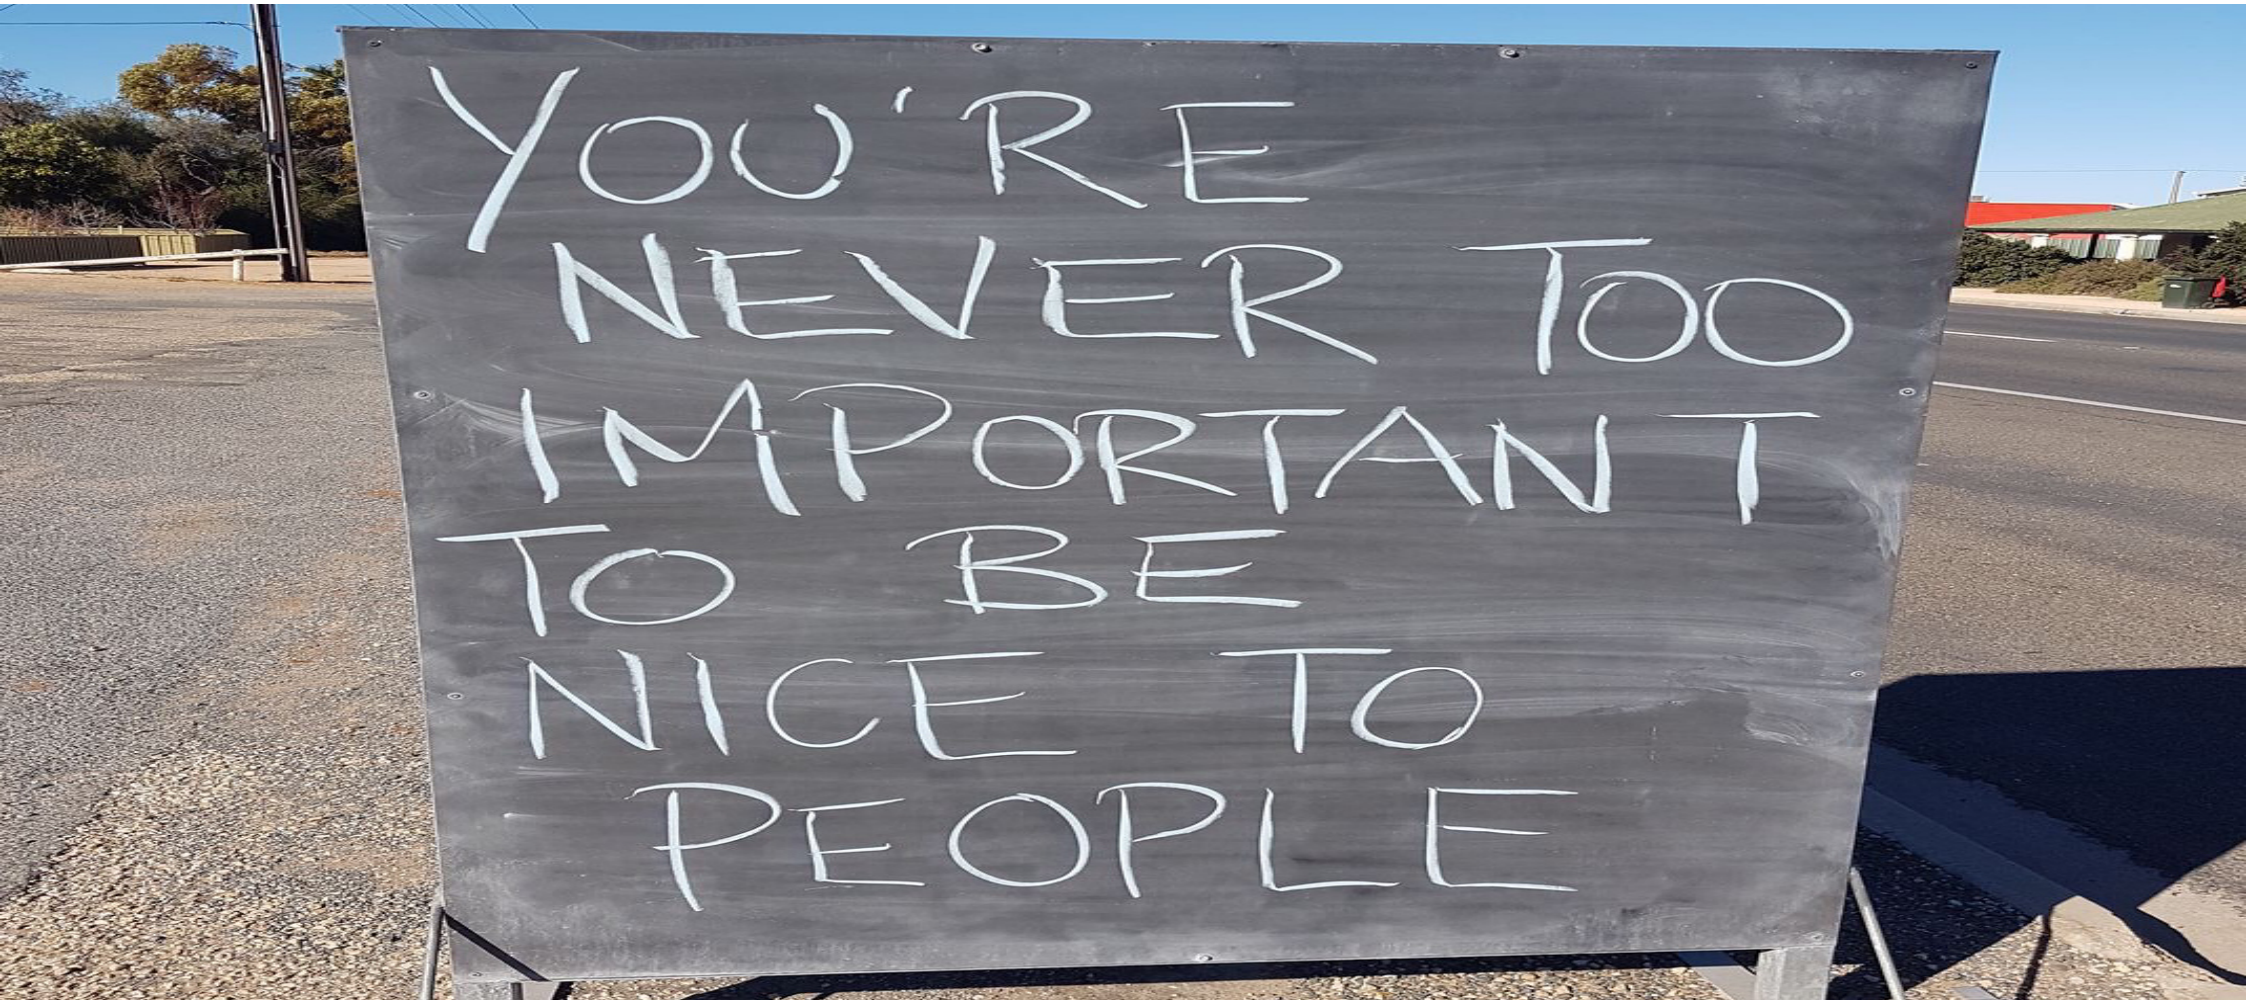 YOU'RE
NEVER TOO
IMPORTANT
TO BE
NICE TO
PEOPLE